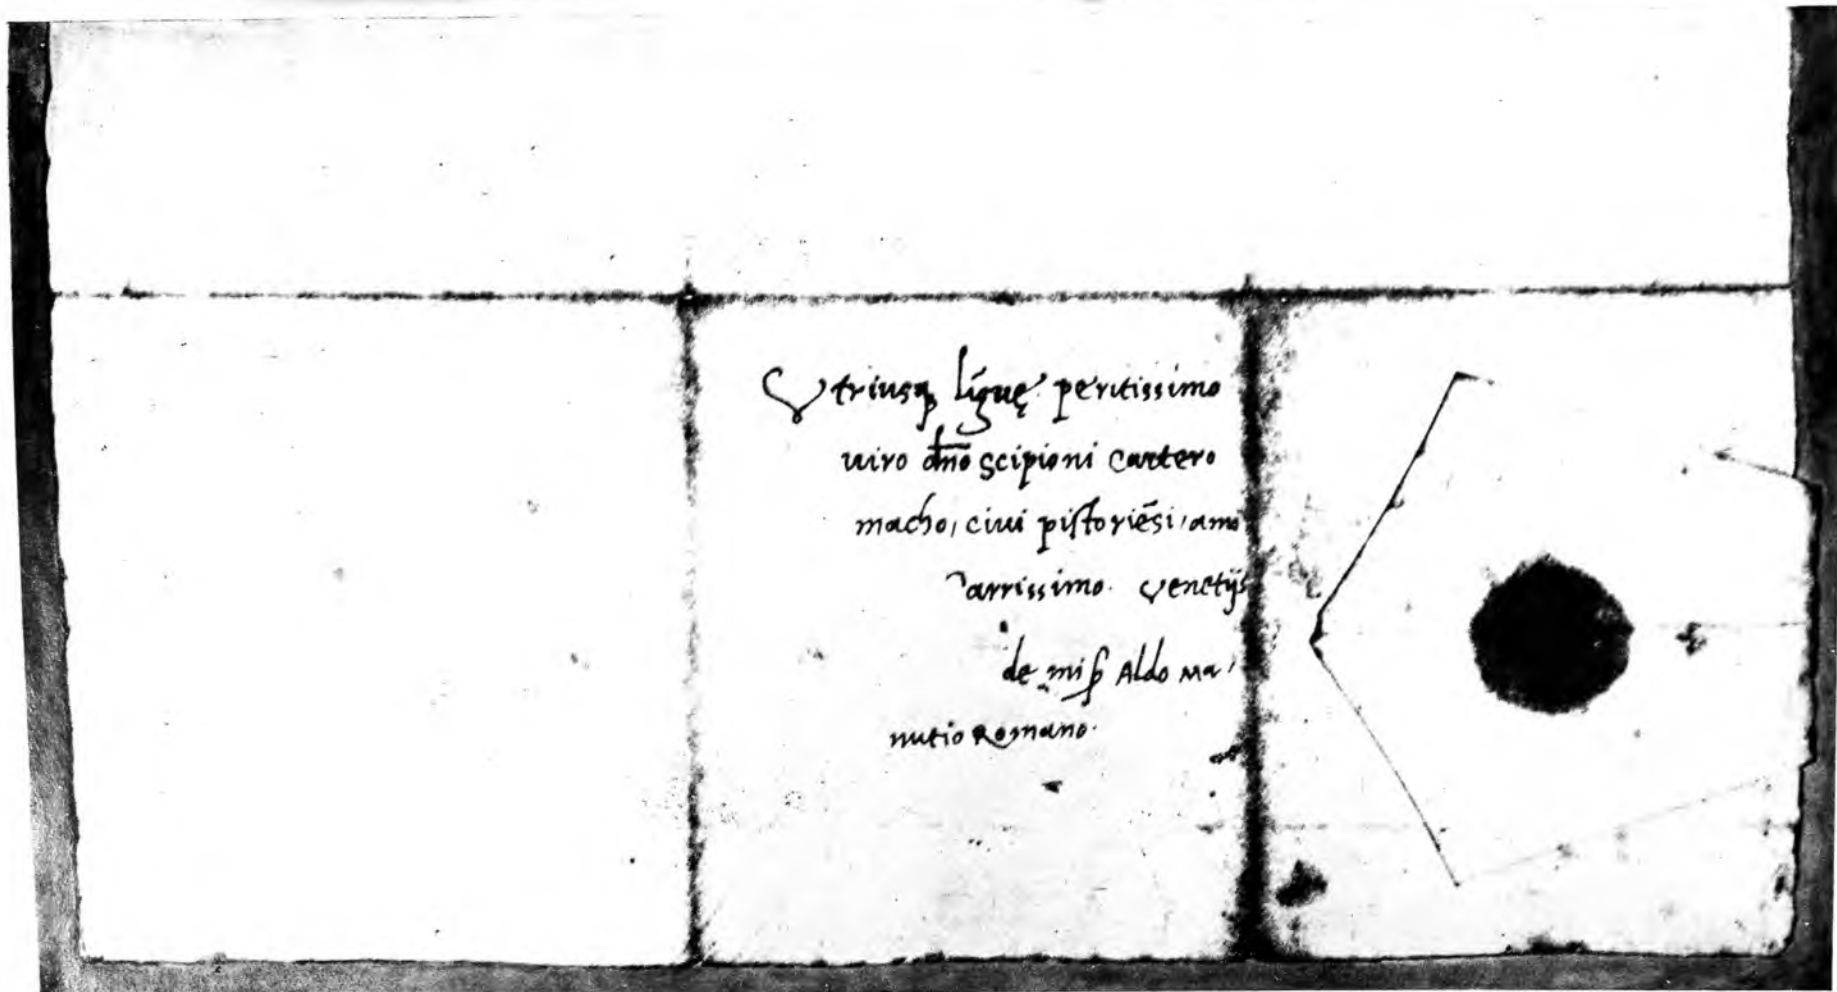 Utriusq; līguę peritissimo
uiro dn̄o Scipioni Cartero
macho, ciui pistoriēsi, amo
arrissimo. Venetijs
de miſſ Aldo Ma,
nutio Romano.